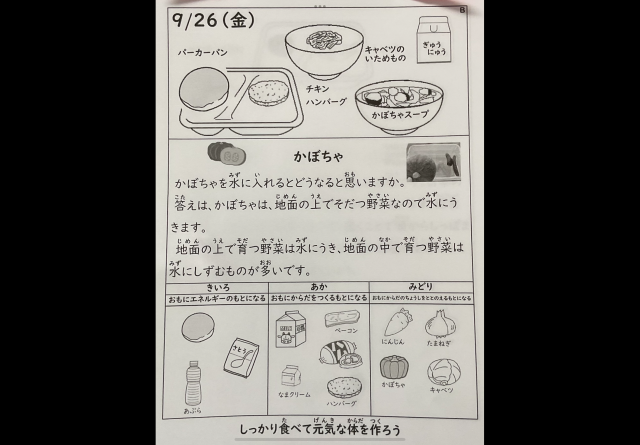 B
9/26(金)
バーガーパン
キャベツの
いためもの
ぎゅう
にゅう
チキン
ハンバーグ
かぼちゃスープ
かぼちゃ
かぼちゃを水に入れるとどうなると思いますか。
答えは、かぼちゃは、地面の上でそだつ野菜なので水にう
きます。
地面の上で育つ野菜は水にうき、地面の中で育つ野菜は
水にしずむものが多いです。
きいろ
あか
みどり
おもにエネルギーのもとになる
おもにからだをつくるもとになる
おもにからだのちょうしをととのえるもとになる
さとう
あぶら
ベーコン
なまクリーム
ハンバーグ
にんじん
たまねぎ
かぼちゃ
キャベツ
しっかり食べて元気な体を作ろう